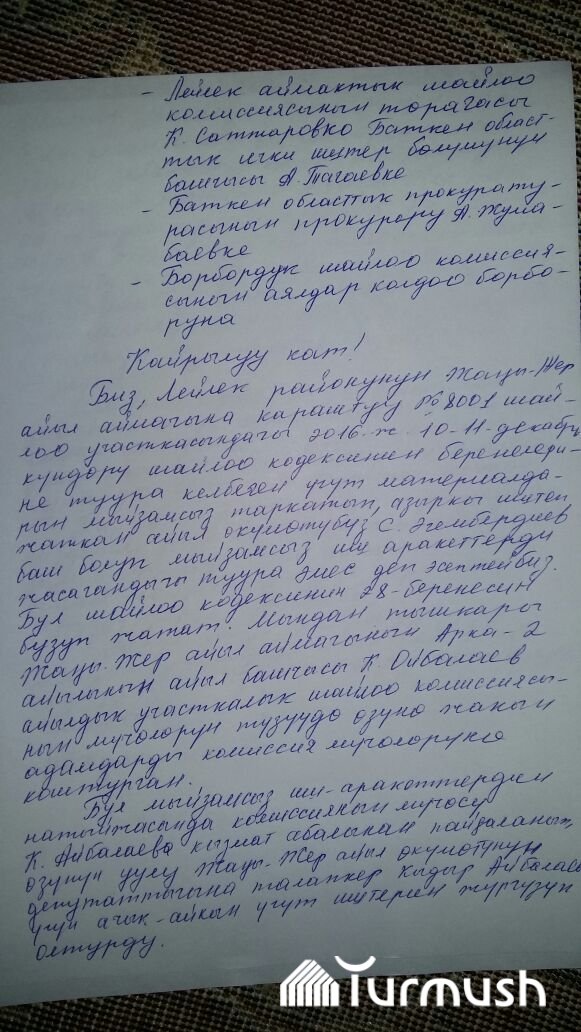 - Лейлек аймактык шайлоо
комиссиясынын торагасы
К. Саттаровко Баткен област-
тык ички иштер болумунун
башчысы А. Тагаевке
- Баткен областтык прокурату-
расынын прокурору А. Жума-
баевке
- Борбордук шайлоо комиссия-
сынын аялдар колдоо борбо-
руна
Кайрылуу кат!
Биз, Лейлек районунун Жаңы-Жер
айыл аймагына караштуу №8001 шай-
лоо участкасындагы 2016-ж. 10-11-декабрь
күндөрү шайлоо кодексинен беренелери-
не туура келбеген үгүт материалда-
рын мыйзамсыз таркатып, азыркы иштеп
жаткан айыл окумотубуз С. Эгембердиев
баш болуп мыйзамсыз иш аракеттерди
жасагандыгы туура эмес деп эсептейбиз.
Бул шайлоо кодексинин 28-беренесин
бузуп жатат. Мындан тышкары
Жаңы-Жер айыл аймагынын Арка-2
айылынын айыл башчысы К. Ойбалаев
айылдык участкалык шайлоо комиссиясы-
нын мучолорун түзүүдө озуно жакын
адамдарды комиссия мучолоруно
коштурган.
Бул мыйзамсыз иш-аракоттердин
натыйжасында комиссиянын мучосу
К. Айбалаева кызмат абалынан пайдаланып,
озунун уулу Жаңы-Жер айыл окумотунун
депутаттыгына талапкер Кыдыр Айбалаев
үчүн ачык-айкын үгүт иштерин жургузуп
олтурду.
Turmush